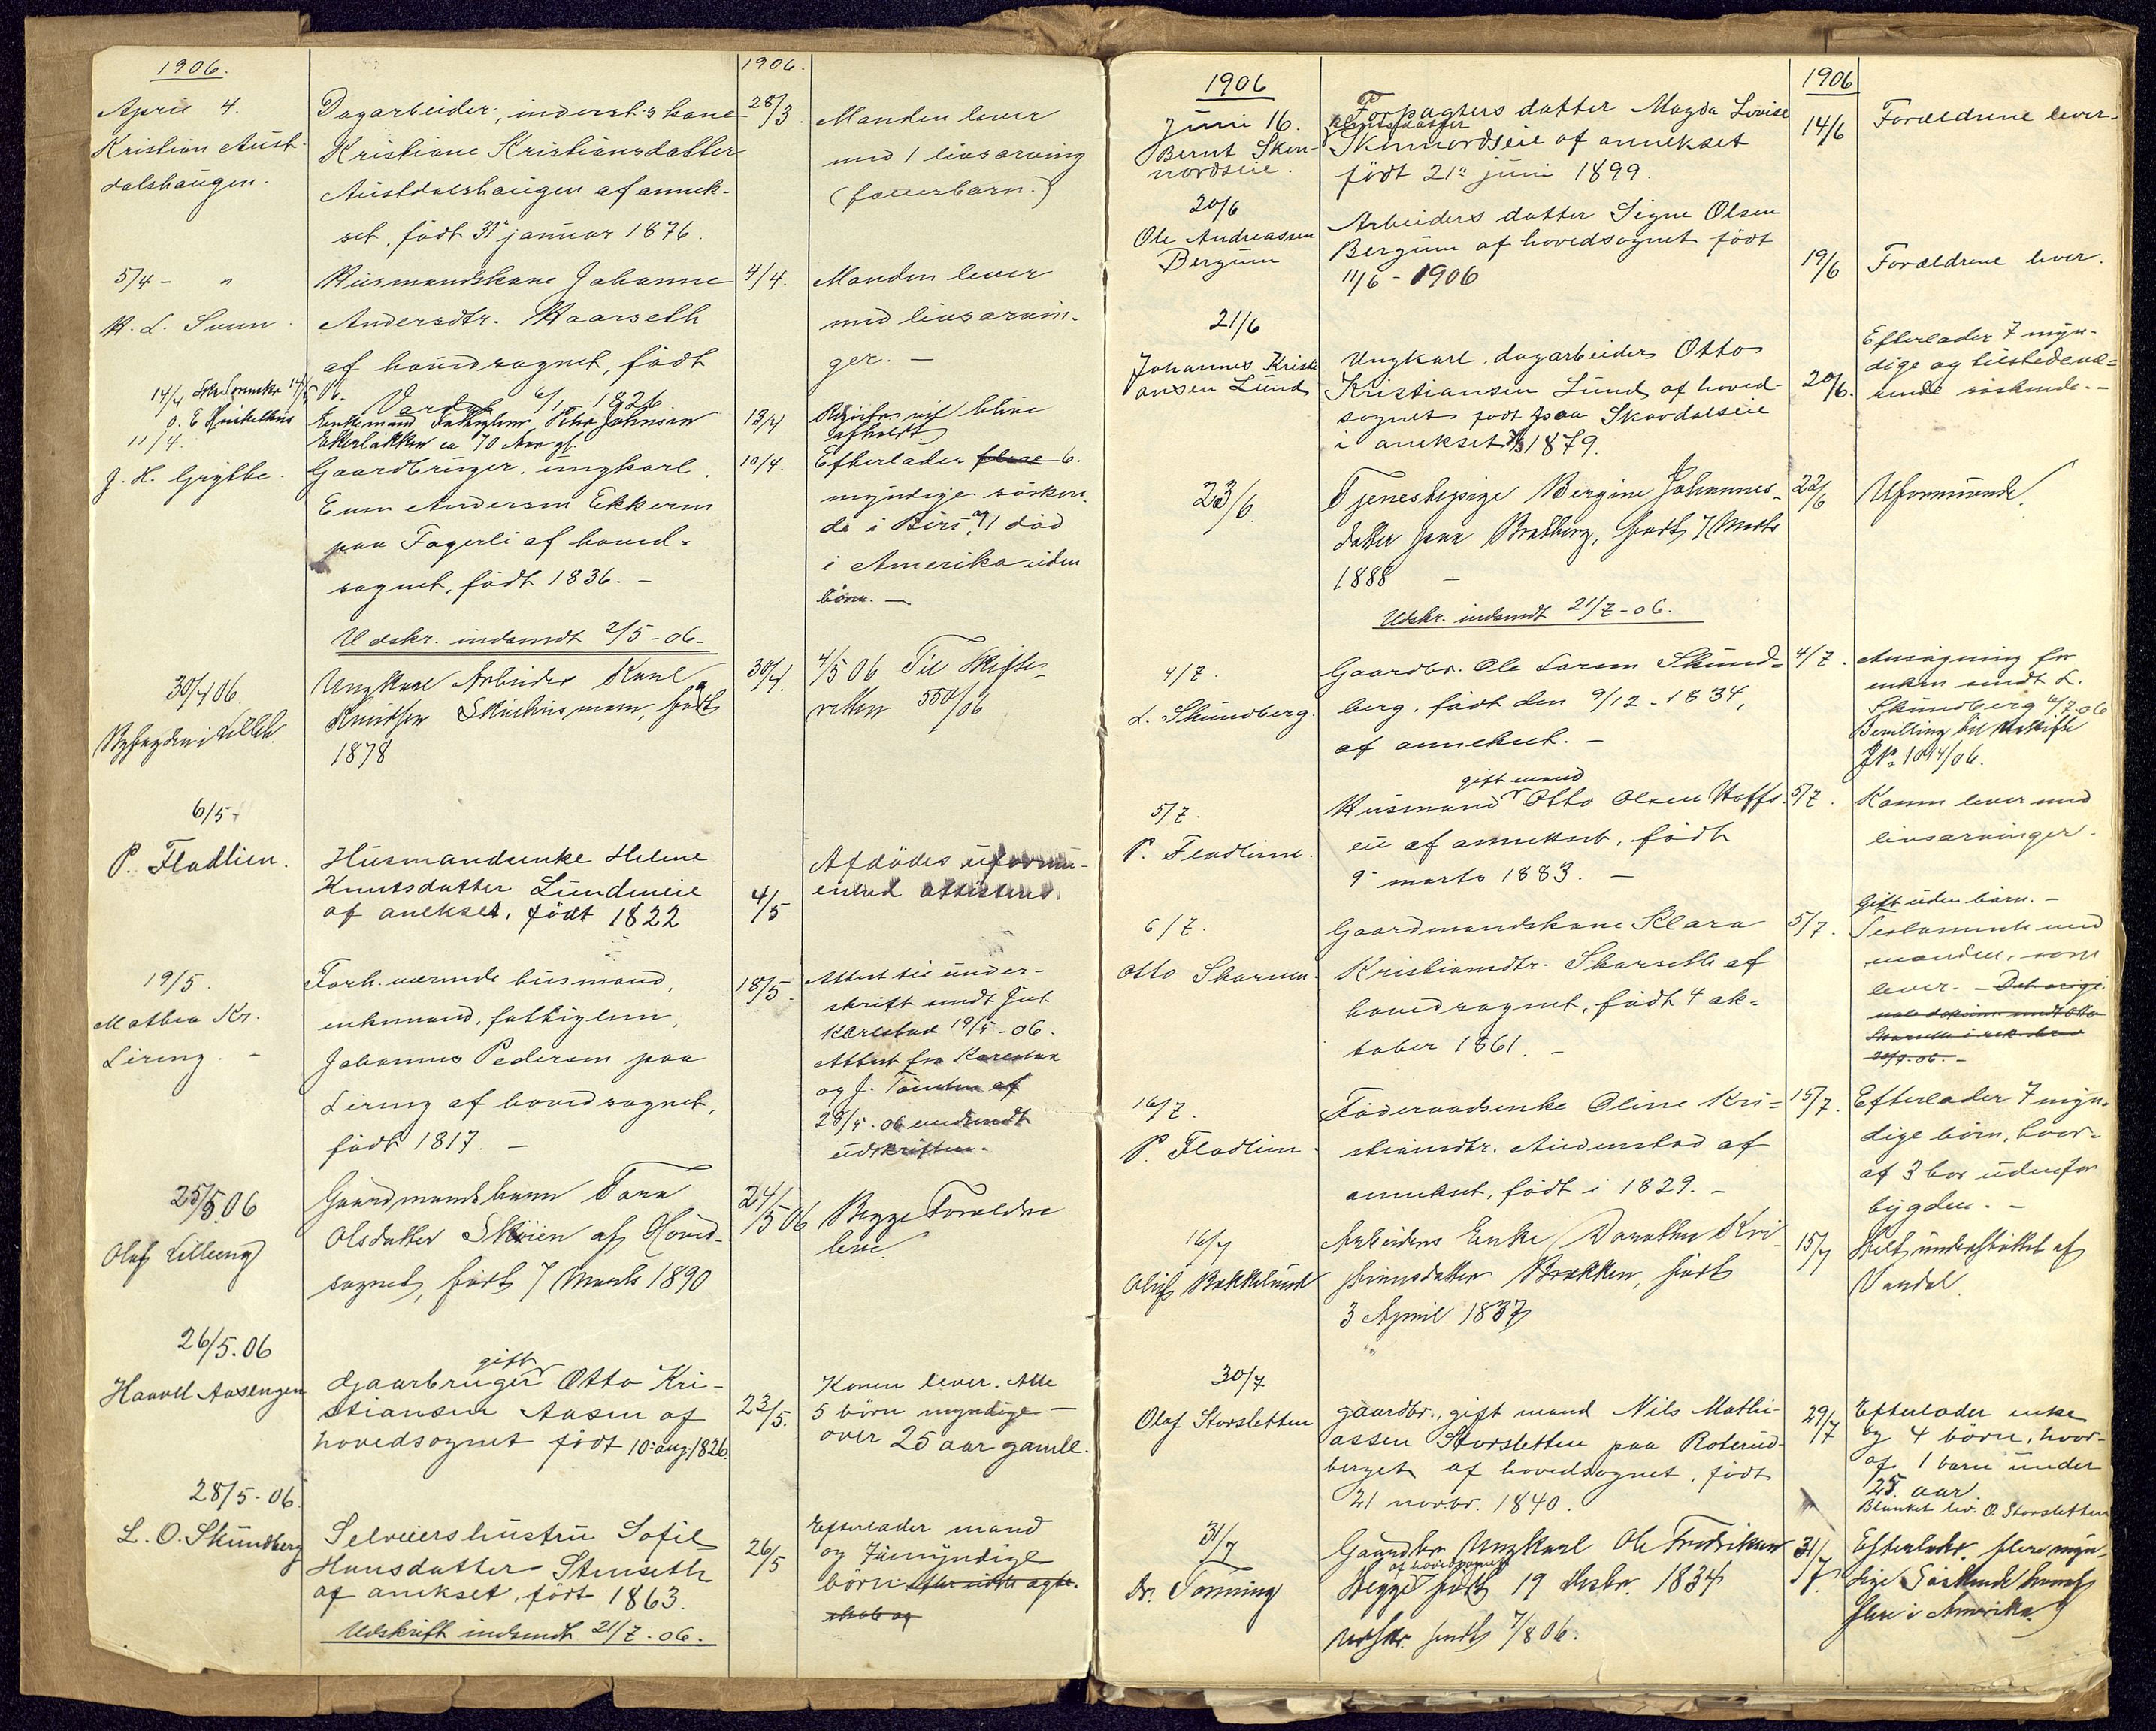 1906.
April 4.
Kristian Aust-
dalshaugen.
Dagarbeider, inderst's kone
Kristiane Kristiansdatter
Austdalshaugen af annek-
set, født 31 januar 1876.
1906.
28/3.
Manden lever
med 1 livsarving
(fællesbarn.)
5/4 - "
H. L. Suen.
Husmandskone Johanne
Andersdtr. Haarseth
af hovedsognet, født
6/1 1826
4/4.
Manden lever
med livsarvin-
ger. —
14/4
Enkemand Fattiglem Peter Johnsen
Ekerbakken ca 70 Aar gl.
13/4
afholdt
11/4.
J. H. Grythe.
Gaardbruger, ungkarl
Even Andersen Ekkern
paa Fagerli af hoved-
sognet, født 1836. —
10/4.
Efterlader flere 6.
myndige søsken-
de i Biri og 1 død
i Amerika uden
børn. —
Udskr. indsendt 2/5-06-
30/4 06.
Ungkarl Arbeider Karl
Knudsen født
1878
30/4.
4/5 06 Til Skifte-
retten 550/06
6/5
P. Fladlien.
Husmandsenke Helene
Knutsdatter Lundseie
af anekset, født 1822
4/5
Afdødes uformu-
enhed attisteres.
19/5.
Mathea Kr.
Liring. -
Forh. værende husmand,
enkemand, fattiglem,
Johannes Pedersen paa
Liring af hovedsognet,
født 1817. —
18/5.
Attest til under-
skrift sendt Gut.
Karlstad 19/5-06.
Attest fra Karlstad
og J. af
28/5.06 medsendt
udskriften.
25/5.06
Olaf Lilleeng
Gaardmandsbarn Tora
Olsdatter Skøien af Hoved-
sognet, født 7 Marts 1890
24/5 06
Begge Forældre
leve.
26/5.06
Haavel Aasengen
gift
Gaarbruger Otto Kri-
stiansen Aasen af
hovedsognet født 10. aug. 1826.
23/5.
Konen lever. Alle
5 børn myndige —
over 25 aar gamle.
28/5-06.
L. O. Skundberg
Selveiershustru Sofie
Hansdatter Stenseth
af anekset, født 1863.
26/5
Efterlader mand
og 7 umyndige
børn.
Udskrift indsendt 21/7-06.
1906
Juni 16.
Bernt Sken-
nordseie.
Forpagters datter Magda Lovise
Berntsdatter
Skennordseie af annekset
født 21de juni 1899.
1906
14/6
Forældrene lever.
20/6
Ole Andreassen
Bergum
Arbeiders datter Signe Olsen
Bergum af hovedsognet født
11/6 - 1906
19/6
Forældrene lever.
21/6
Johannes Kristi-
ansen Lund
Ungkarl, dagarbeider Otto
Kristiansen Lund af hoved-
sognet født paa Skardalseie
i anekset 1879.
20/6.
Efterlader 7 myn-
dige og tilstedevæ-
rende søskende. -
23/6.
Tjenestepige Bergine Johannes-
datter paa Bratberg, født 7 Marts
1888 —
22/6
Uformuende.
Udskr. indsendt 21/7-06.
4/7.
L. Skundberg.
Gaardbr. Ole Larsen Skund-
berg, født den 9/12-1834,
af annekset. —
4/7.
Ansøgning for
enken sendt L.
Skundberg 6/7-06
Bevilling til Uskifte
J№ 1014/06.
5/7.
P. Fladlien.
gift mand
Husmand Otto Olsen Hoffs-
eie af annekset, født
9. marts 1883. —
5/7.
Konen lever med
livsarvinger.
6/7.
Otto Skarseth.
Gaardmandskone Klara
Kristiansdtr. Skarseth af
hovedsognet, født 4 ok-
tober 1861. —
5/7.
Gift uden børn. —
Testamente med
manden, som
lever. — Det origi-
nale dokument sendt Otto
Skarseth i rek. brev
20/7.06. —
16/7.
P. Fladlien.
Føderaadsenke Oline Kri-
stiansdtr. Audenstad af
annekset, født i 1829. —
15/7.
Efterlader 7 myn-
dige børn, hvor-
af 3 bor udenfor
bygden. —
16/7
Oluf Bakkelund
Arbeiders Enke Dorothea Kri
stiansdatter Brækken, født
3 April 1837
15/7
Helt understøttet af
30/7
Olaf Storsletten
gaardbr., gift mand Nils Mathi-
assen Storsletten paa Roterud-
berget af hovedsognet, født
21 novbr. 1840.
29/7
Efterlader enke
og 4 børn, hvor-
af 1 barn under
25 aar.
Blanket lev. O. Storsletten
31/7
Dr. Tønning
Gaardbr. Ungkarl Ole Fredriksen
af hovedsognet
Hegge født 19 Desbr. 1834
Udskr. sendt 7/8 06.
31/7.
Efterlader flere myn-
dige Søskende hvoraf
flere i Amerika